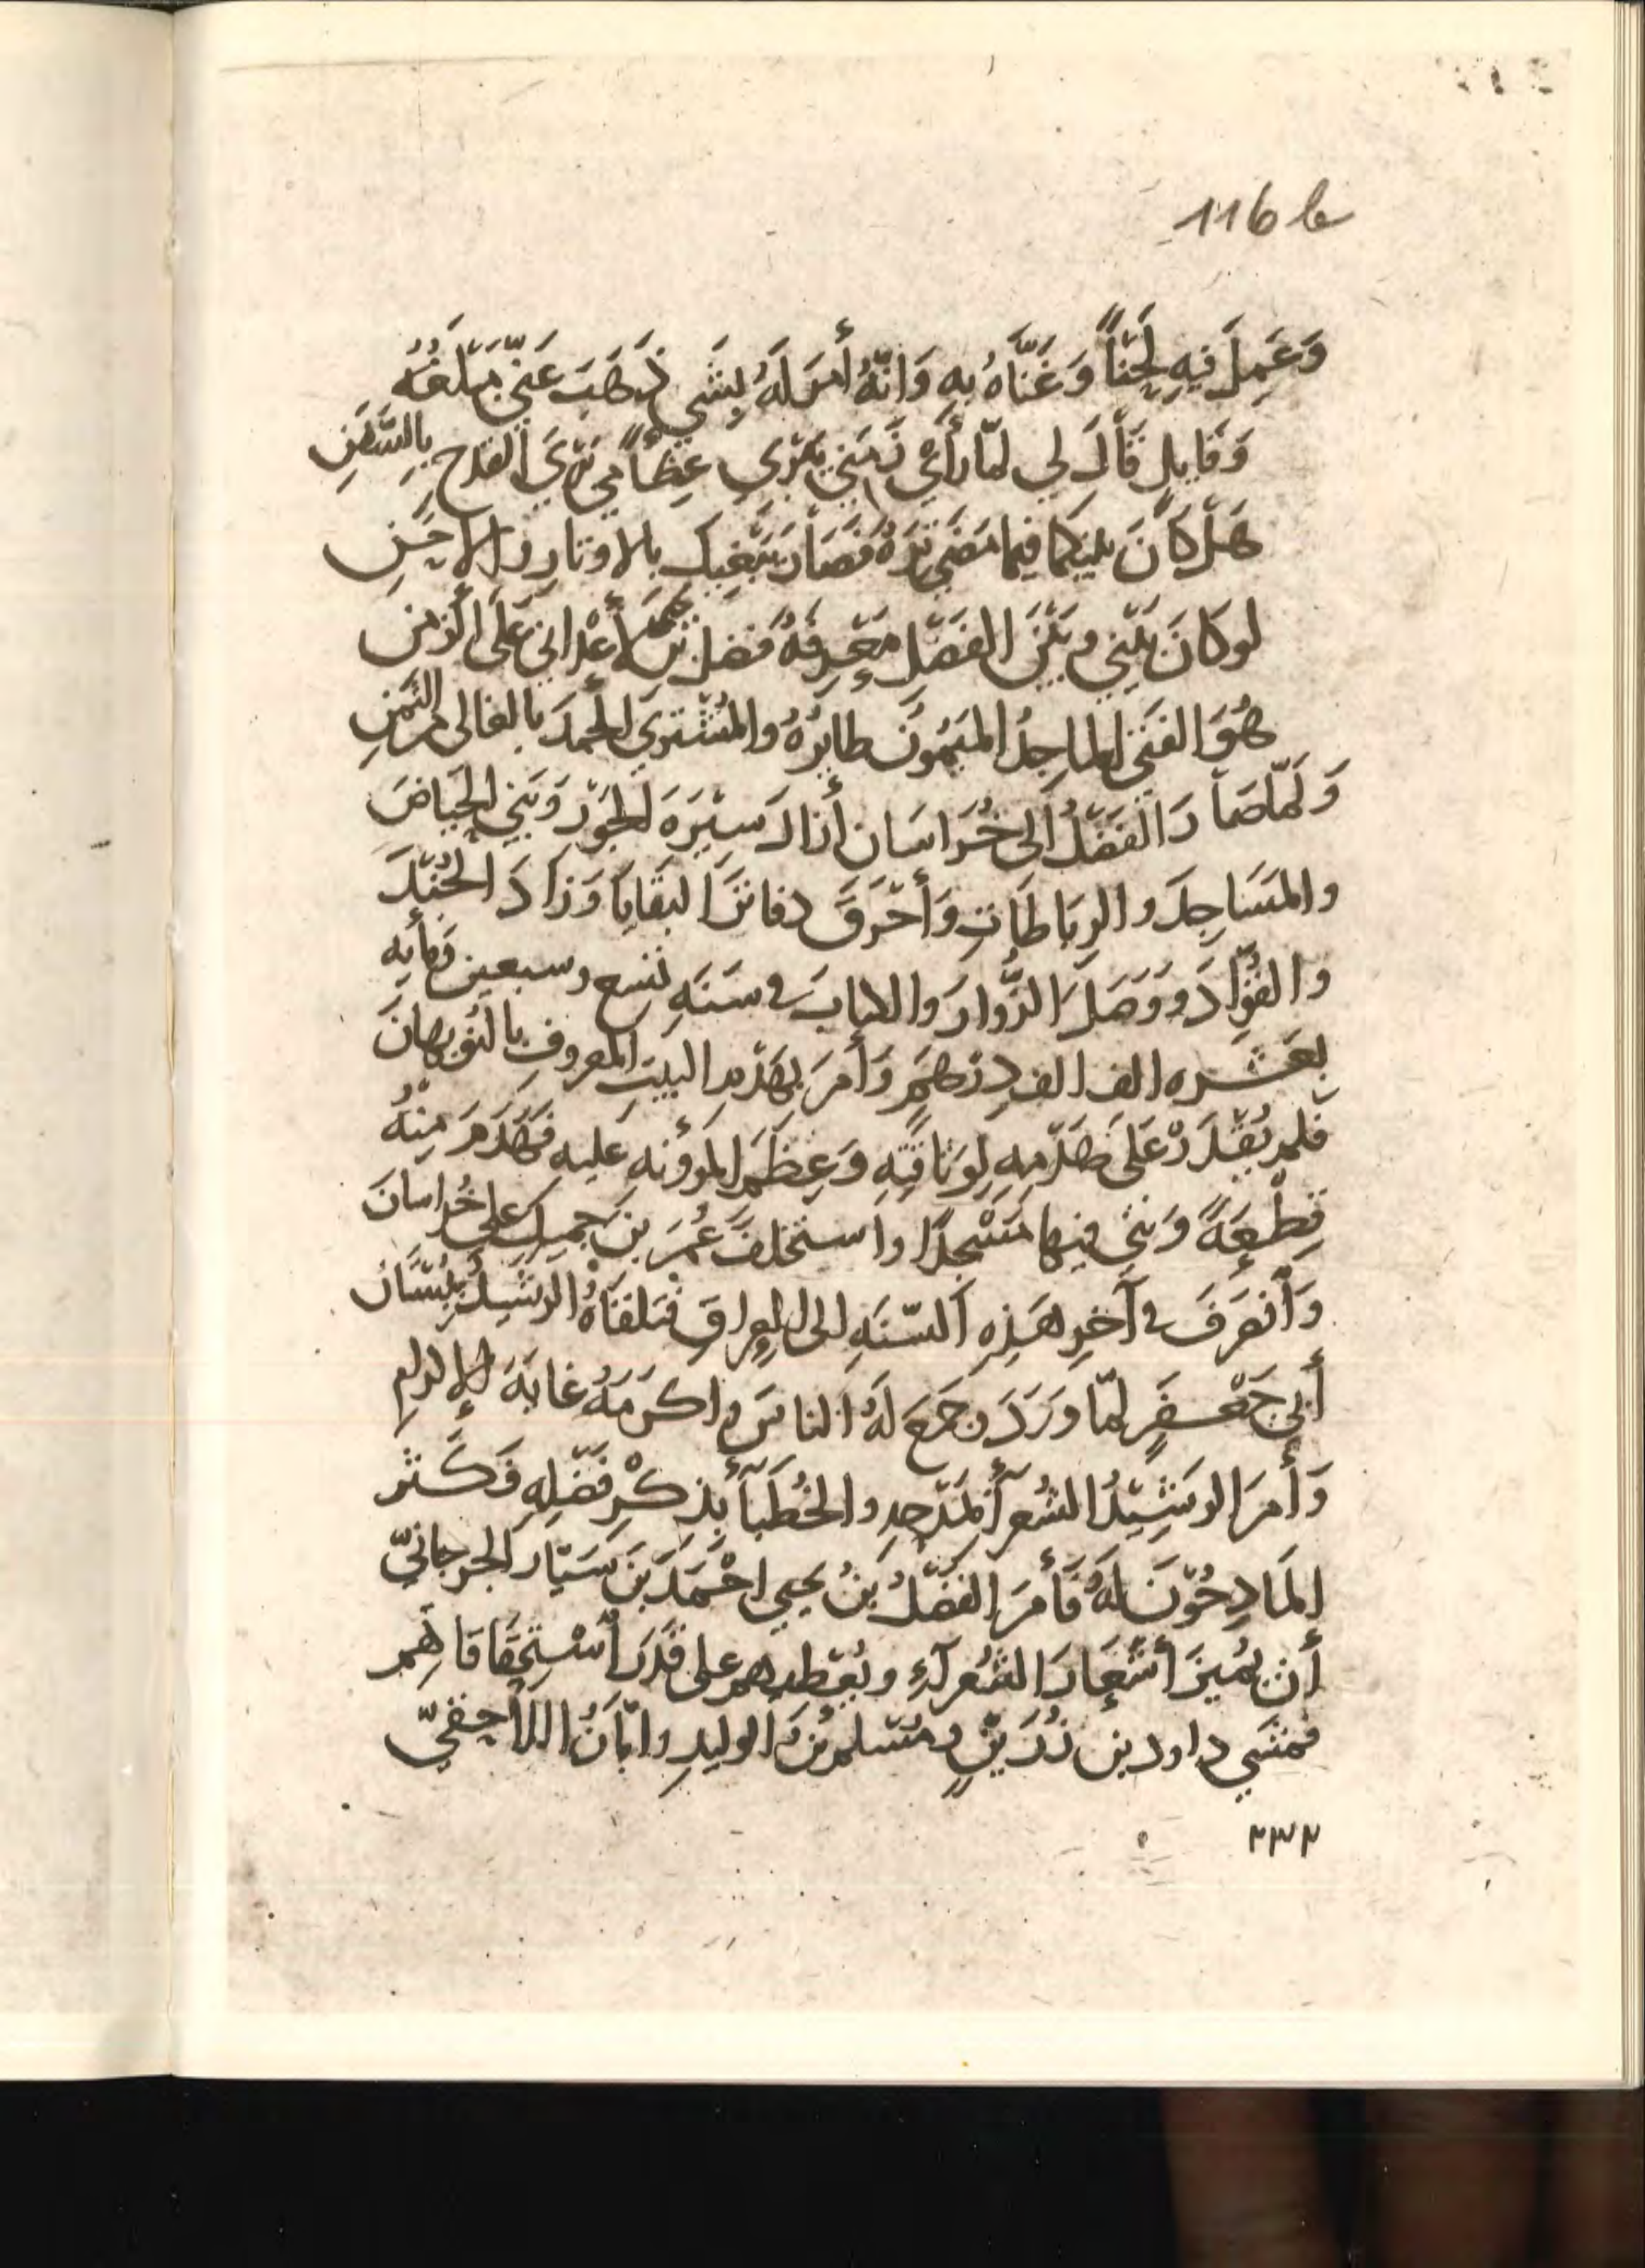 116 a
وَعَمِلَ فيهِ لَحْنًا وَغَنَّاهُ بِهِ وَانَّهُ أَمَرَ لَهُ بِشَي ذَهَبَ عَنّي مَبْلَغُهُ
وَقايلٍ قَالَ لي لمّا رَأَي زَمَنِي يَبْري عِظَامي بَرْيَ القدح بِالسَّفَنِ
هَلْ كَانَ بينكما فيما مَضَي تِرَةٌ فَصَارَ يَبْغيك بالاوتارِ والاحَنِ
لو كانَ بَيْني وبَيْنَ الفَضْلِ مَعْرِفةٌ فضل بن يحيي لأَعْداني عَلَى الزمن
هُوَ الفَتَي الماجِدُ المَيْمُونُ طايرُهُ والمُشْتري الحَمدَ بالغالي من الثمَنِ
وَلَمّا صَارَ الفَضْلُ الى خُرَاسَان أزالَ سِيْرَةَ الجَوْرِ وَبَني الحِيَاضَ
والمسَاجِدَ والرِبَاطَاتِ وَأَحْرَقَ دفاترَ البَقَايَا وَزَادَ الجُنْدَ
والقُوّادَ وَوَصَلَ الزُّوارَ والكتابَ في سَنَةِ تسع وسبعين ومأيه
بعَشره الف الف دِرْهَمٍ وَأَمَرَ بهَدْمِ البيتِ المعروفِ بالنُوبهانَ
فلم يُقْدَرْ عَلَى هَدْمِهِ لِوَثَاقَتِهِ وَعِظَمِ المؤونه عليه فَهُدِمَ مِنْهُ
قِطْعَةً وَبَني فيها مَسْجدًا واستخلَفَ عُمَرَ بنَ جميلٍ على خُراسانَ
وَأنصَرَفَ في آخرِ هَذِه السّنَةِ الى العراقِ فتلقاهُ الرشيدُ ببُسْتَان
أبي جَعْفَرٍ لمّا وَرَدَ وجَمَعَ لَهُ الناسَ واكرَمَهُ غايَةَ الإكرامِ
وَأَمرَ الرشِيْدُ الشُعرآءَ بمَدْحِهِ والخُطَبآءَ بِذِكْرِ فَضْلِهِ فَكَثُر
المَادِحُوْنَ لَهُ فَأَمرَ الفَضْلُ بنُ يحيي احْمَدَ بنَ سَيّارِ الجرجانيّ
أن يُميزَ أشْعَارَ الشُعرآءِ ويُعْطيهم على قَدْرِ أسْتِحْقَاقاهِم
فمشَي داود بن رُزَيْنٍ ومُسلم بنُ الوليدِ وابَانُ اللاَّحِقيّ
٢٣٢